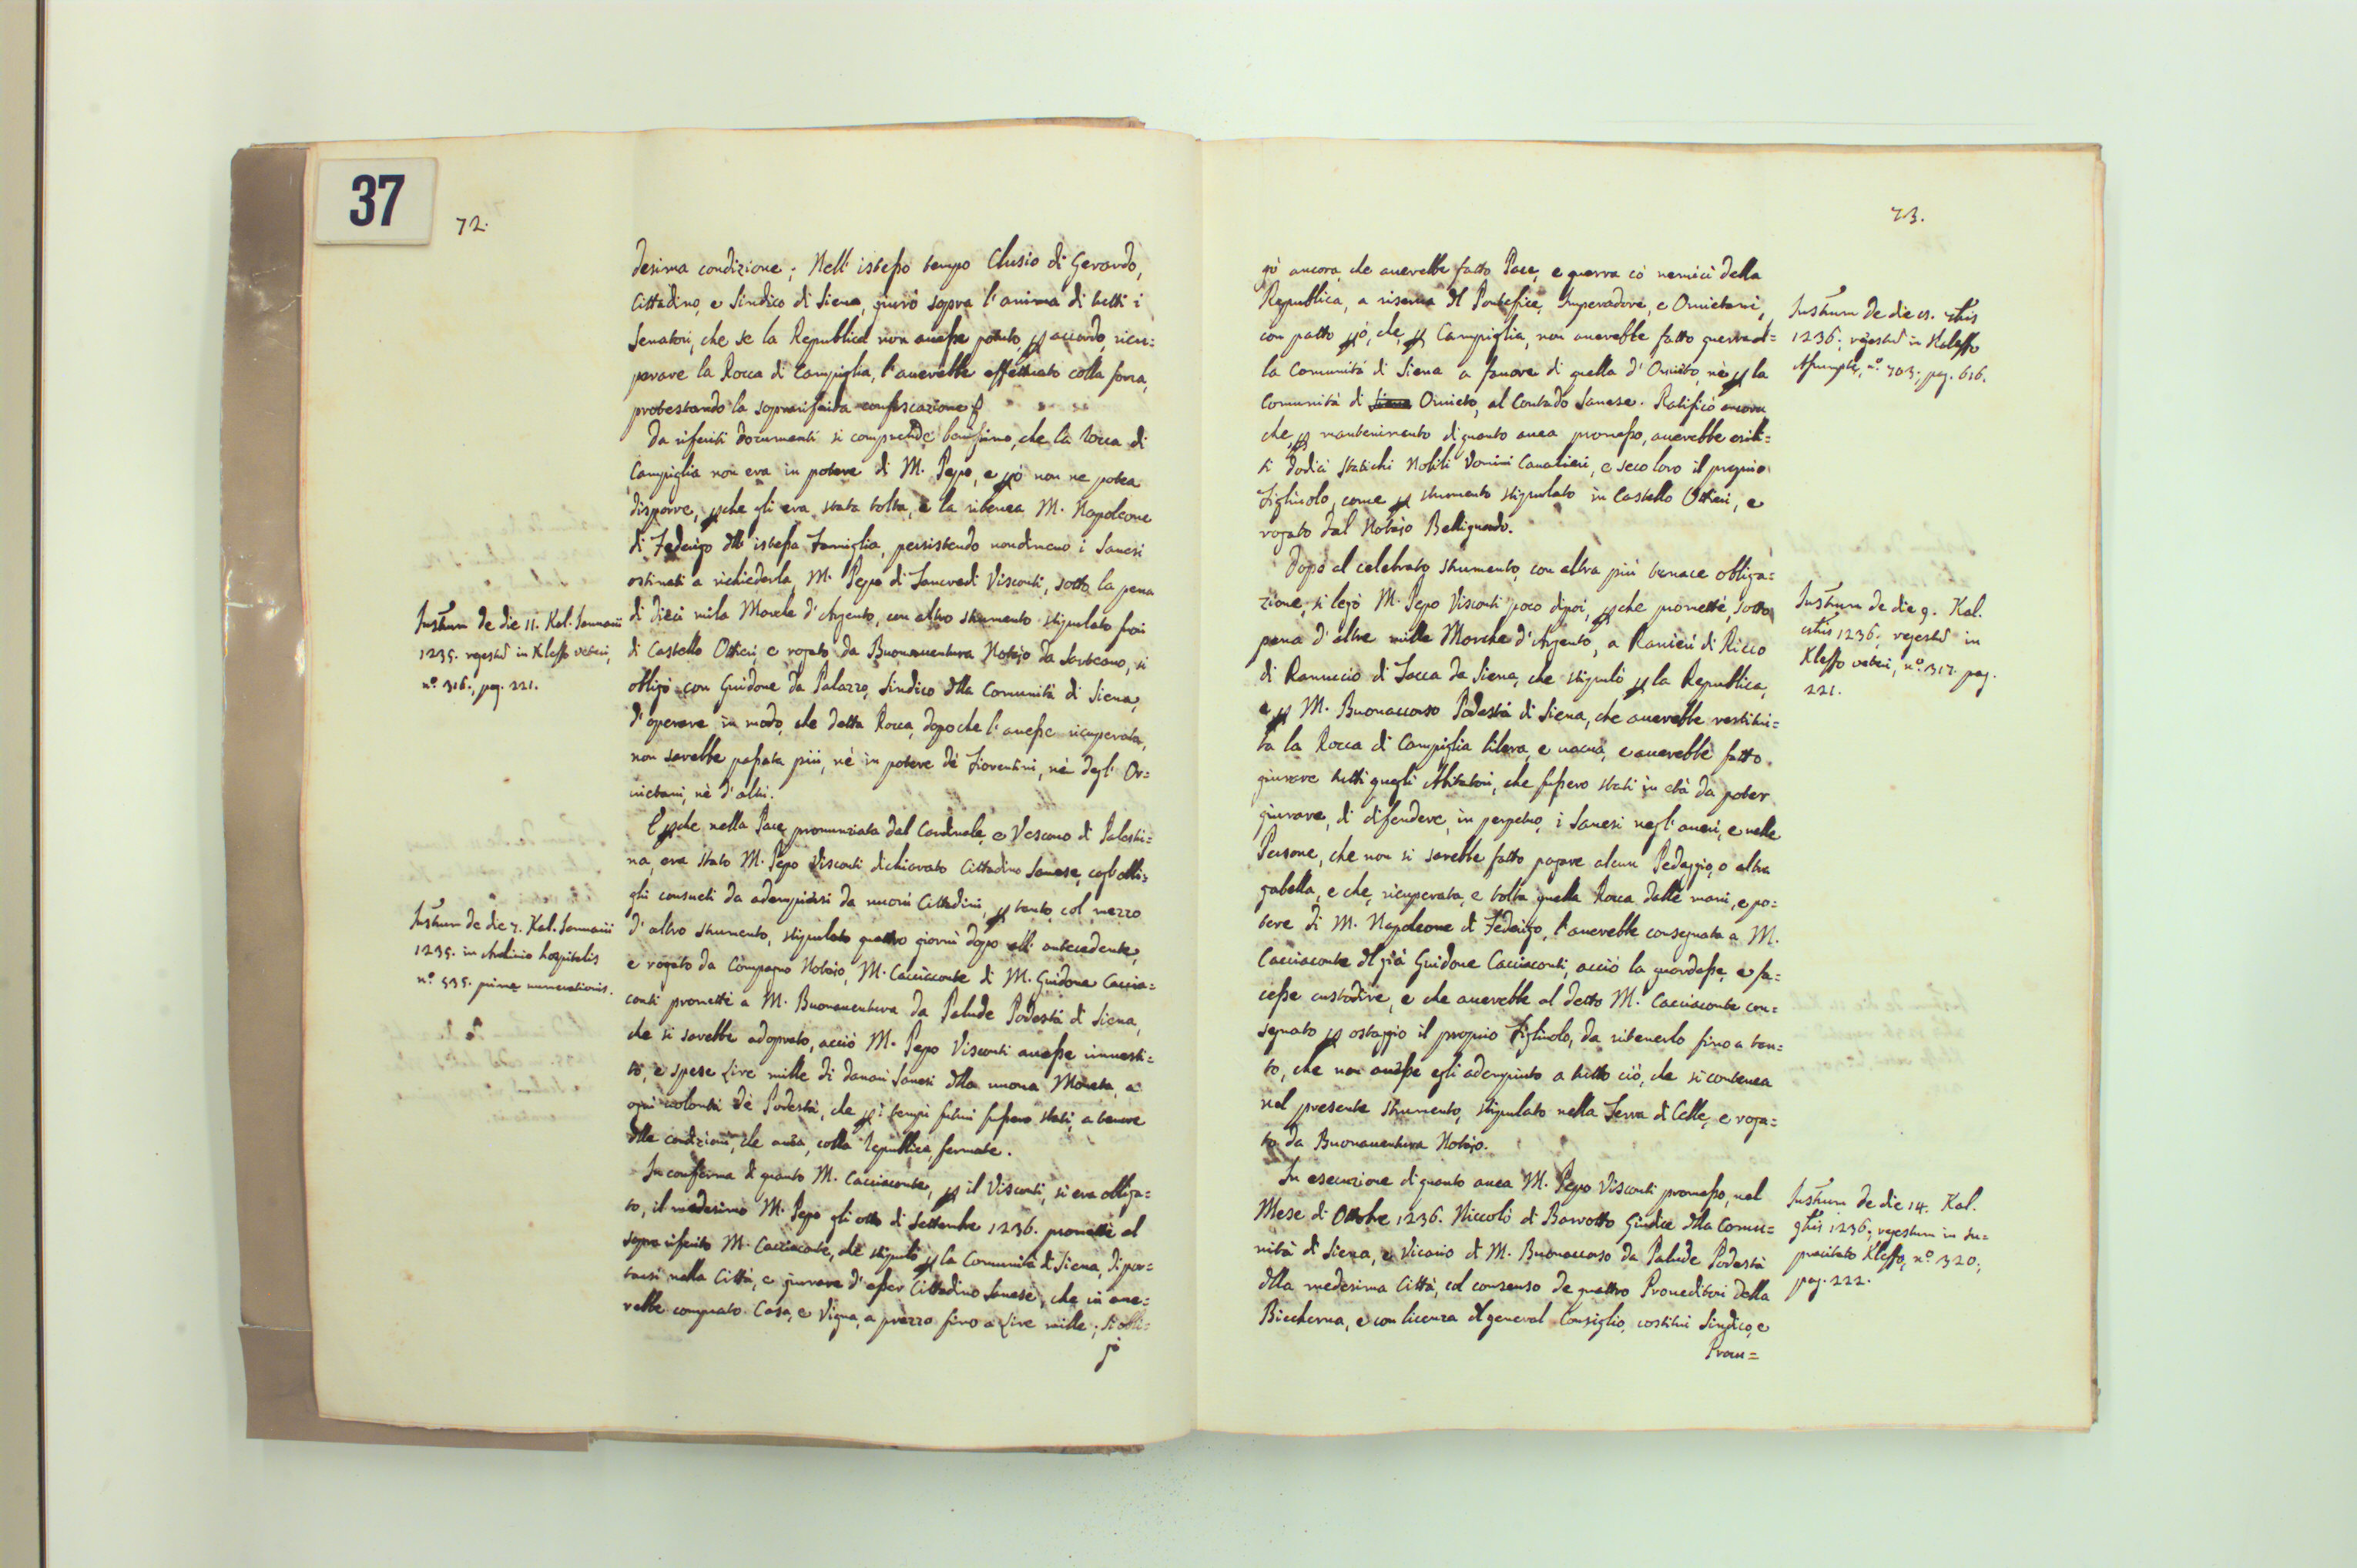 37
72.
desima condizione; Nell' istesso tempo Clusio di Gerardo,
Cittadino, e Sindico di Siena, giurò sopra l'anima di tutti i
Senatori, che se la Republica non auesse potuto, p accordo, ricu=
perare la Rocca di Campiglia, l'auerebbe effettuato colla forza,
protestando la sopra confiscazione
Da riferiti documenti si comprende benissimo, che la Rocca di
Campiglia non era in potere di M. Pepo, e pò non ne potea
disporre, pche gli era stata tolta, e la ritenea M. Napoleone
di Federigo dll' istessa Famiglia, persistendo nondimeno i Sanesi
ostinati a richiederla, M. Pepo di Tancredi Visconti, sotto la pena
di dieci mila Marche d'Argento, con altro strumento stipulato fuori
di Castello Ottieri, e rogato da Buonauentura Notajo da Sarteano, si
obligò con Guidone da Palazzo, Sindico dlla Comunità di Siena,
d'operare in modo, che detta Rocca, dopo che l'auesse ricuperata,
non sarebbe passata più, nè in potere dè Fiorentini, nè degl' Or=
uietani, nè d'altri.
E pche nella Pace, pronunziata dal Cardinale, e Vescouo di Palestri=
na, era stato M. Pepo Visconti dichiarato Cittadino Sanese, cogl'obli=
ghi consueti da adempirsi da nuoui Cittadini, p tanto, col mezzo
d'altro strumento, stipulato quattro giorni dopo all' antecedente,
e rogato da Compagno Notajo, M. Cacciaconte di M. Guidone Caccia=
conti promette a M. Buonauentura da Palude Podestà di Siena,
che si sarebbe adoprato, acciò M. Pepo Visconti auesse inuesti=
to, e spese Lire mille di danari Sanesi dlla nuoua Moneta, a
ogni volontà dè Podestà, che p i tempi futuri fussero stati, a tenore
dlle condizioni, che auea, colla Republica, fermate.
In conferma di quanto M. Cacciaconte, p il Visconti, si era obliga=
to, il medesimo M. Pepo gli otto di Settembre 1236. promette al
sopra riferito M. Cacciaconte, che stipulò p la Comunità di Siena, di por=
tarsi nella Città, e giurare d'esser Cittadino Sanese, che in aue=
rebbe comprato Casa, e Vigna, a prezzo fino a Lire mille; Si obli=
gò
Instrum de die 11. Kal. Januarii
1235. regestũ in Kleffo veteri,
nº. 316., pag. 221.
Instrum de die 7. Kal. Januarii
1235. in Archiuio hospitalis
nº. 535. primæ numerationis.
73.
gò ancora, che auerebbe fatto Pace, e guerra cò nemici della
Republica, a riserua dl Pontefice, Imperadore, e Oruietani,
con patto pò, che, p Campiglia, non auerebbe fatto guerra al=
la Comunità di Siena a fauore di quella d'Oruieto, nè p la
Comunità di Oruieto, al Contado Sanese. Ratificò ancora
che, p mantenimento di quanto auea promesso, auerebbe esibi=
ti dodici Statichi Nobili Vomini Caualieri, e seco loro il proprio
Figliuolo, come p strumento stipulato in Castello Ottieri, e
rogato dal Notajo Bellignardo.
Dopo al celebrato strumento, con altra più tenace obliga=
zione, si legò M. Pepo Visconti poco dipoi, pche promette, sotto
pena d'altre mille Marche d'Argento, a Ranieri di Ricco
di Rannuccio di Sacca da Siena, che stipulò p la Republica,
e p M. Buonaccorso Podestà di Siena, che auerebbe restitui=
ta la Rocca di Campiglia libera, e uacua, e auerebbe fatto
giurare tutti quegli Abitatori, che fussero stati in età da poter
giurare, di difendere, in perpetuo, i Sanesi negl' aueri, e nelle
Persone, che non si sarebbe fatto pagare alcun Pedaggio, o altra
gabella, e che, ricuperata, e tolta quella Rocca dalle mani, e po=
tere di M. Napoleone di Federigo, l'auerebbe consegnata a M.
Cacciaconte dl già Guidone Cacciaconti, acciò la guardasse, e fa=
cesse custodire, e che auerebbe al detto M. Cacciaconte con=
segnato p ostaggio il proprio Figliuolo, da ritenerlo fino a tan=
to, che non auesse egli adempiuto a tutto ciò, che si contenea
nel presente strumento, stipulato nella Terra di Celle, e roga=
to da Buonauentura Notajo.
In esecuzione di quanto auea M. Pepo Visconti promesso, nel
Mese di Ottobre 1236. Niccolò di Barrotto Giudice dlla Comu=
nità di Siena, e Vicario di M. Buonaccorso da Palude Podestà
dlla medesima Città, col consenso de quattro Proueditori della
Biccherna, e con licenza dl general Consiglio, costituì Sindico, e
Procu=
1236., regestũ in Kaleffo
Assumpte, nº. 703., pag. 616.
Instrum de die 9. Kal.
1236., regestũ in
Kleffo veteri, nº. 317. pag.
221.
Instrum de die 14. Kal.
1236., regestum in su=
pracitato Kleffo, nº. 320.,
pag. 222.